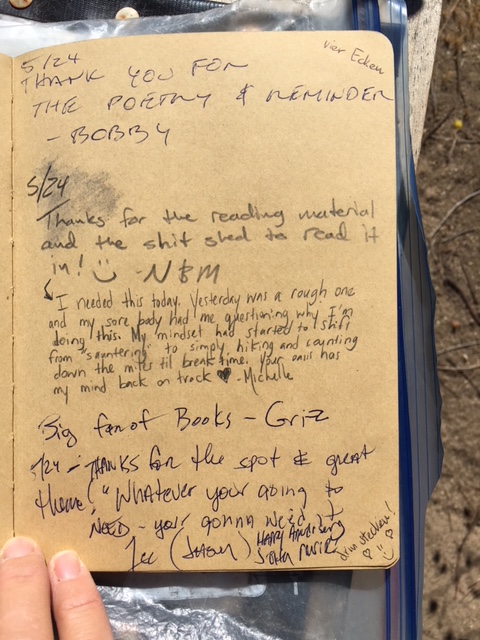 5/24
vier Ecken
THANK YOU FOR
THE POETRY & REMINDER
- BOBBY
5/24
Thanks for the reading material
and the shit shed to read it
in! -NBM
I needed this today. Yesterday was a rough one
and my sore body had me questioning why I'm
doing this. My mindset had started to shift
from "sauntering" to simply hiking and counting
down the miles til break time. Your oasis has
my mind back on track ♥ -Michelle
Big fan of Books - Griz
5/24 - THANKS for the spot & great
theme! "Whatever your going to
NEED - your gonna need it
drin stecken!